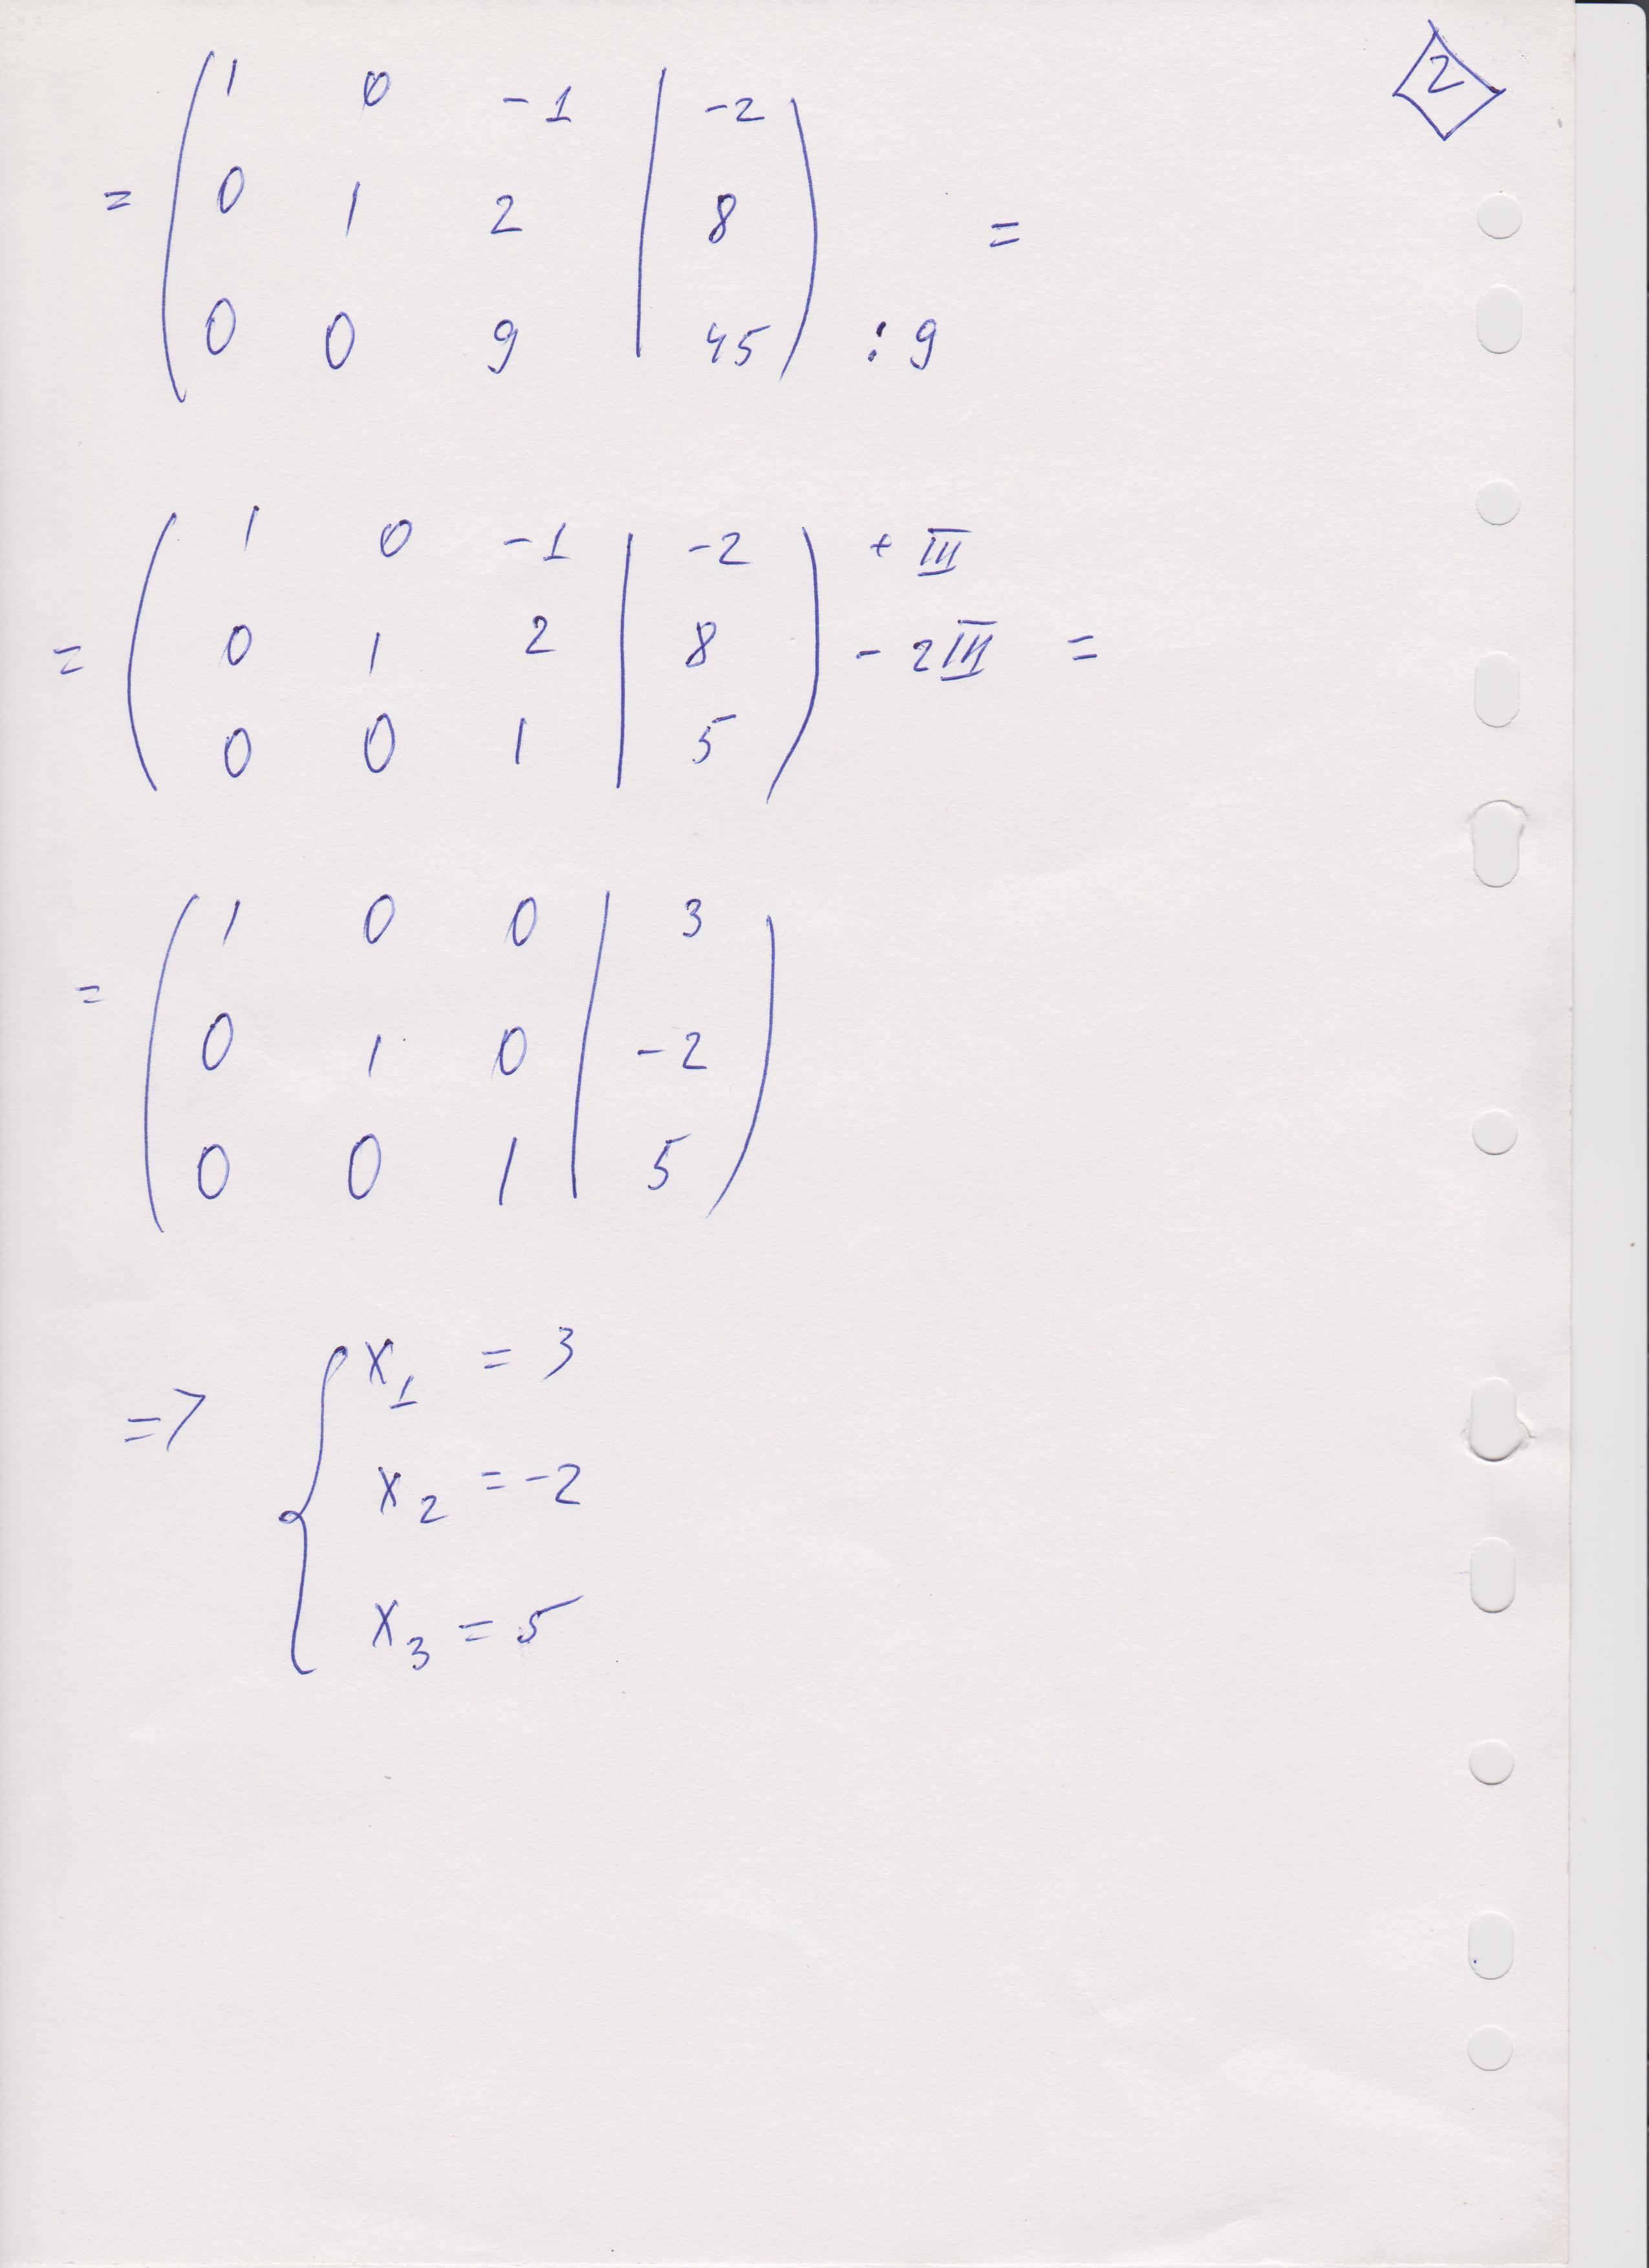 2
1 0 -1 | -2
= 0 1 2 | 8 =
0 0 9 | 45 : 9
1 0 -1 | -2 + III
= 0 1 2 | 8 - 2III =
0 0 1 | 5
1 0 0 | 3
= 0 1 0 | -2
0 0 1 | 5
x1 = 3
=> x2 = -2
x3 = 5